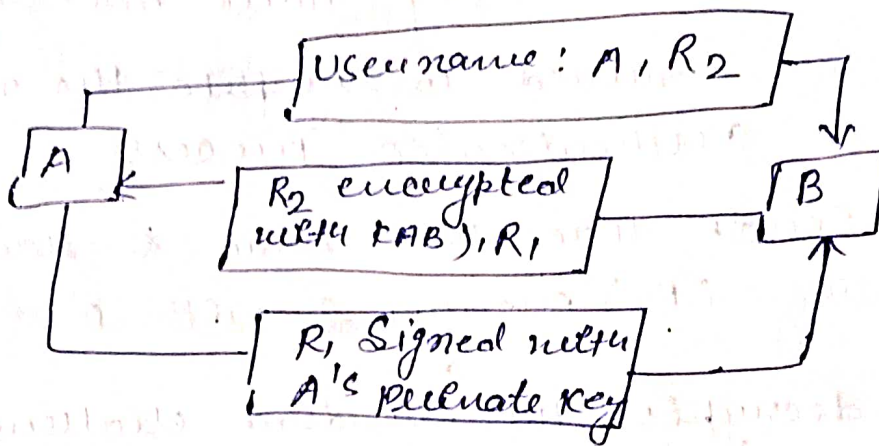 Username: A, R2
A
R2 encrypted
with KAB), R1
B
R1 Signed with
A's private key